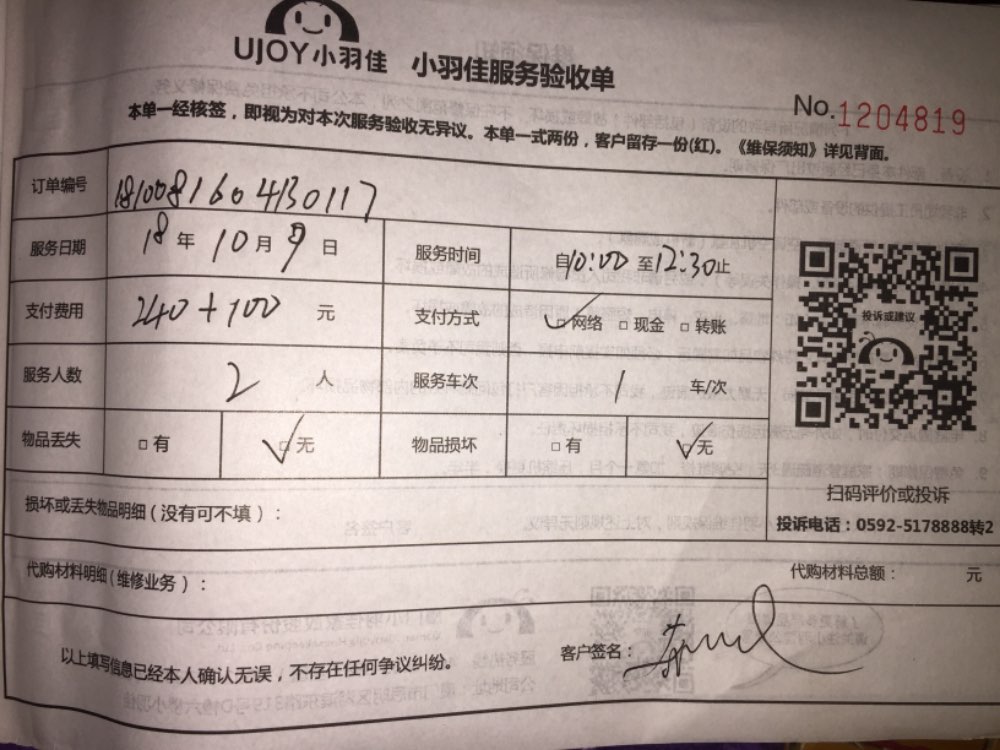 UJOY小羽佳 小羽佳服务验收单
No.1204819
本单一经核签，即视为对本次服务验收无异议。本单一式两份，客户留存一份(红)。《维保须知》详见背面。
订单编号 1810081604130117
服务日期 18年10月9日 服务时间 自10:00至12:30止
支付费用 240+100 元 支付方式 ☑网络 □现金 □转账
服务人数 2 人 服务车次 1 车/次
物品丢失 □有 ☑无 物品损坏 □有 ☑无
投诉或建议
扫码评价或投诉
投诉电话：0592-5178888转2
损坏或丢失物品明细（没有可不填）：
代购材料明细（维修业务）： 代购材料总额： 元
以上填写信息已经本人确认无误，不存在任何争议纠纷。 客户签名：